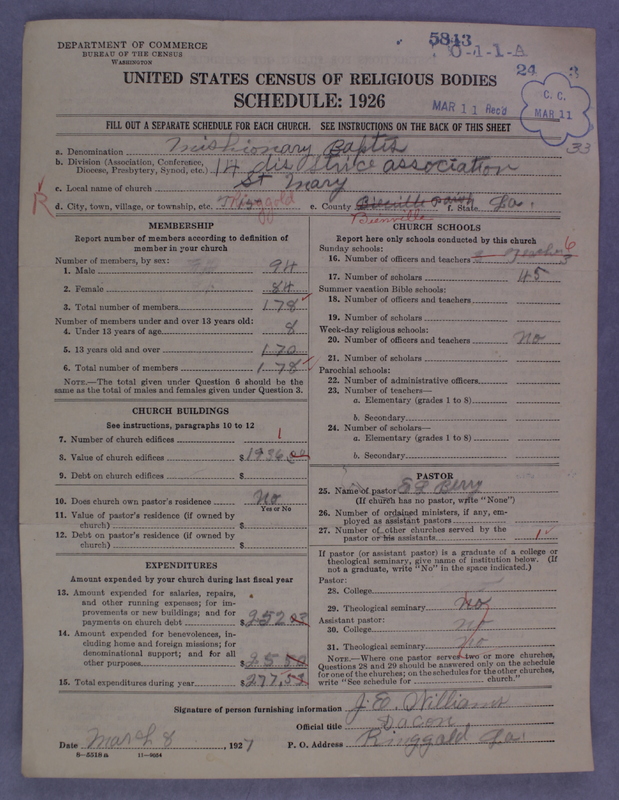 DEPARTMENT OF COMMERCE
BUREAU OF THE CENSUS
WASHINGTON
5843
0-1-1-A
24 3
UNITED STATES CENSUS OF RELIGIOUS BODIES
SCHEDULE: 1926
MAR 11 Rec'd
C. C.
MAR 11
FILL OUT A SEPARATE SCHEDULE FOR EACH CHURCH. SEE INSTRUCTIONS ON THE BACK OF THIS SHEET
33
a. Denomination Missionary Baptis
b. Division (Association, Conference,
Diocese, Presbytery, Synod, etc.) 14 district association
c. Local name of church St Mary
R d. City, town, village, or township, etc. Ringgold e. County Bienville Parish f. State La.
Bienville
MEMBERSHIP
Report number of members according to definition of
member in your church
Number of members, by sex:
1. Male 94
2. Female 84
3. Total number of members 178
Number of members under and over 13 years old:
4. Under 13 years of age 8
5. 13 years old and over 170
6. Total number of members 178
NOTE.—The total given under Question 6 should be the
same as the total of males and females given under Question 3.
CHURCH BUILDINGS
See instructions, paragraphs 10 to 12
7. Number of church edifices 1
8. Value of church edifices $1936.00
9. Debt on church edifices $
10. Does church own pastor's residence No
Yes or No
11. Value of pastor's residence (if owned by
church) $
12. Debt on pastor's residence (if owned by
church) $
EXPENDITURES
Amount expended by your church during last fiscal year
13. Amount expended for salaries, repairs,
and other running expenses; for im-
provements or new buildings; and for
payments on church debt $252
14. Amount expended for benevolences, in-
cluding home and foreign missions; for
denominational support; and for all
other purposes $25
15. Total expenditures during year $277.
CHURCH SCHOOLS
Report here only schools conducted by this church
Sunday schools:
16. Number of officers and teachers 6
17. Number of scholars 45
Summer vacation Bible schools:
18. Number of officers and teachers
19. Number of scholars
Week-day religious schools:
20. Number of officers and teachers no
21. Number of scholars
Parochial schools:
22. Number of administrative officers
23. Number of teachers—
a. Elementary (grades 1 to 8)
b. Secondary
24. Number of scholars—
a. Elementary (grades 1 to 8)
b. Secondary
PASTOR
25. Name of pastor Berry
(If church has no pastor, write "None")
26. Number of ordained ministers, if any, em-
ployed as assistant pastors
27. Number of other churches served by the
pastor or his assistants 1
If pastor (or assistant pastor) is a graduate of a college or
theological seminary, give name of institution below. (If
not a graduate, write "No" in the space indicated.)
Pastor:
28. College
29. Theological seminary No
Assistant pastor:
30. College No
31. Theological seminary No
NOTE.—Where one pastor served two or more churches,
Questions 28 and 29 should be answered only on the schedule
for one of the churches; on the schedules for the other churches,
write "See schedule for church."
Signature of person furnishing information J. E. Williams
Official title Dacon
Date March 8, 1927 P. O. Address Ringgald La.
8—5518a 11—9084